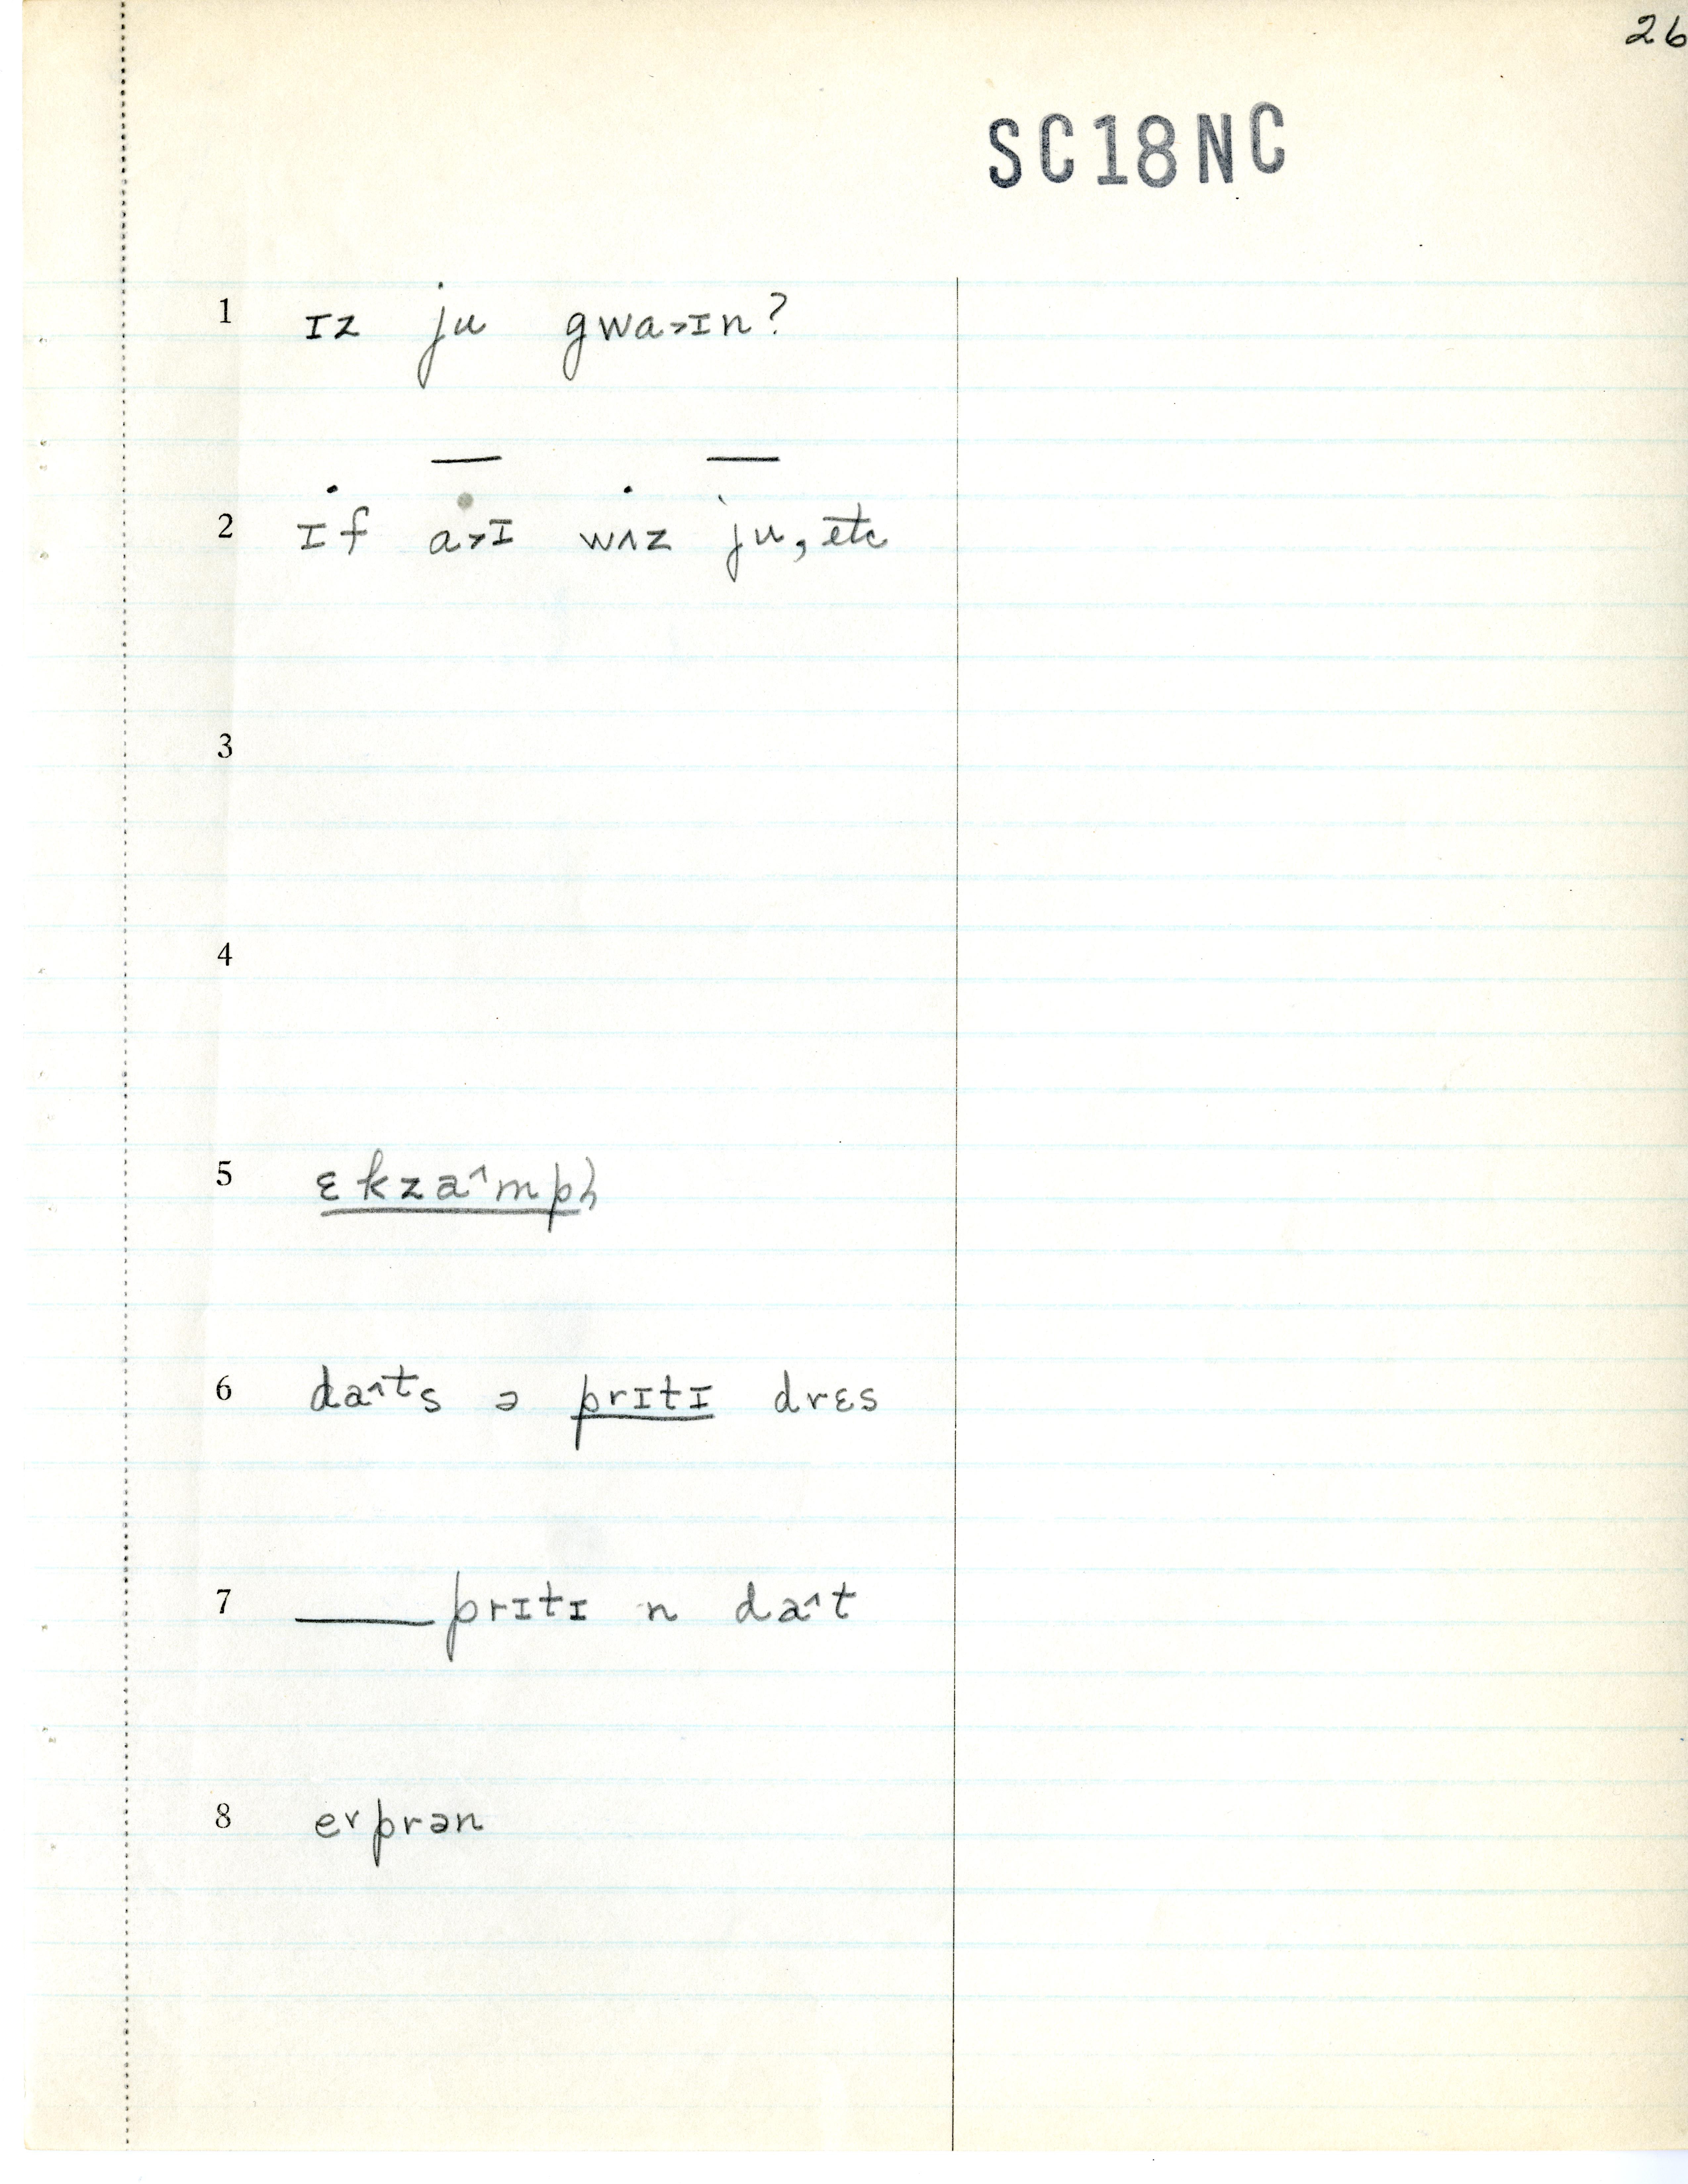 26
SC18NC
1 ɪz ju gwa˃ɪn?
2 ɪf a˃ɪ wʌz ju, etc
3
4
5 ɛkza˄mpl̩
6 da˄ts ə prɪtɪ drɛs
7 ____prɪtɪ n da˄t
8 e˅prən